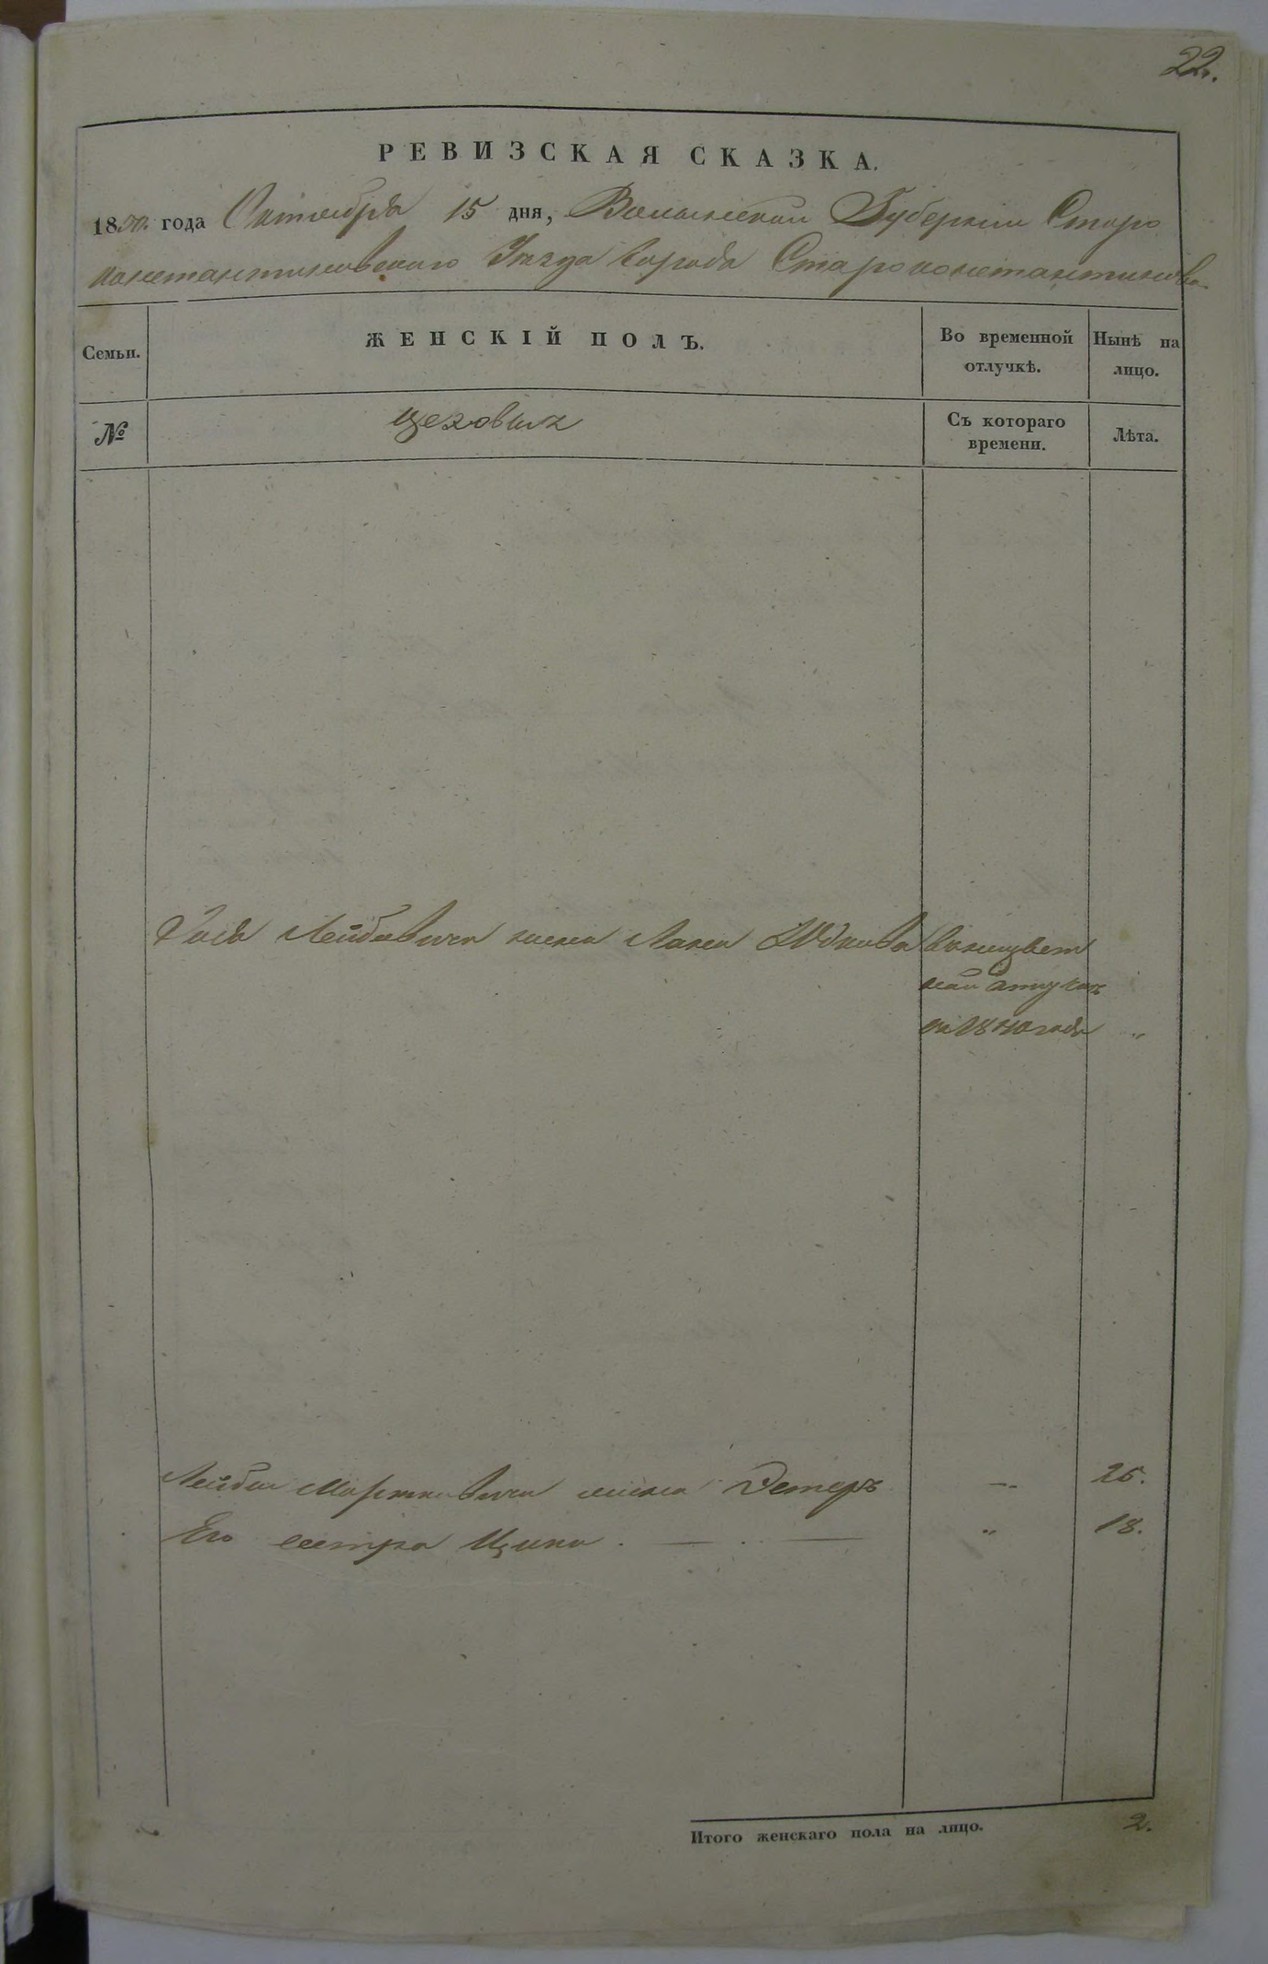 22.
РЕВИЗСКАЯ СКАЗКА.
1850. года Октября 15 дня, Волынской Губернии Старо
константиновского Уезда города Староконстантинова
Семьи. ЖЕНСКІЙ ПОЛЪ. Во временной отлучкѣ. Нынѣ на лицо.
№ цеховых Съ котораго времени. Лѣта.
Лейбовича жена Даня в неизвест
ной отлучке
1840 года "
Лейбы Мортковича жена Эстеръ — 25.
Его сестра Ципа . — . — " 18.
Итого женскаго пола на лицо. 2.